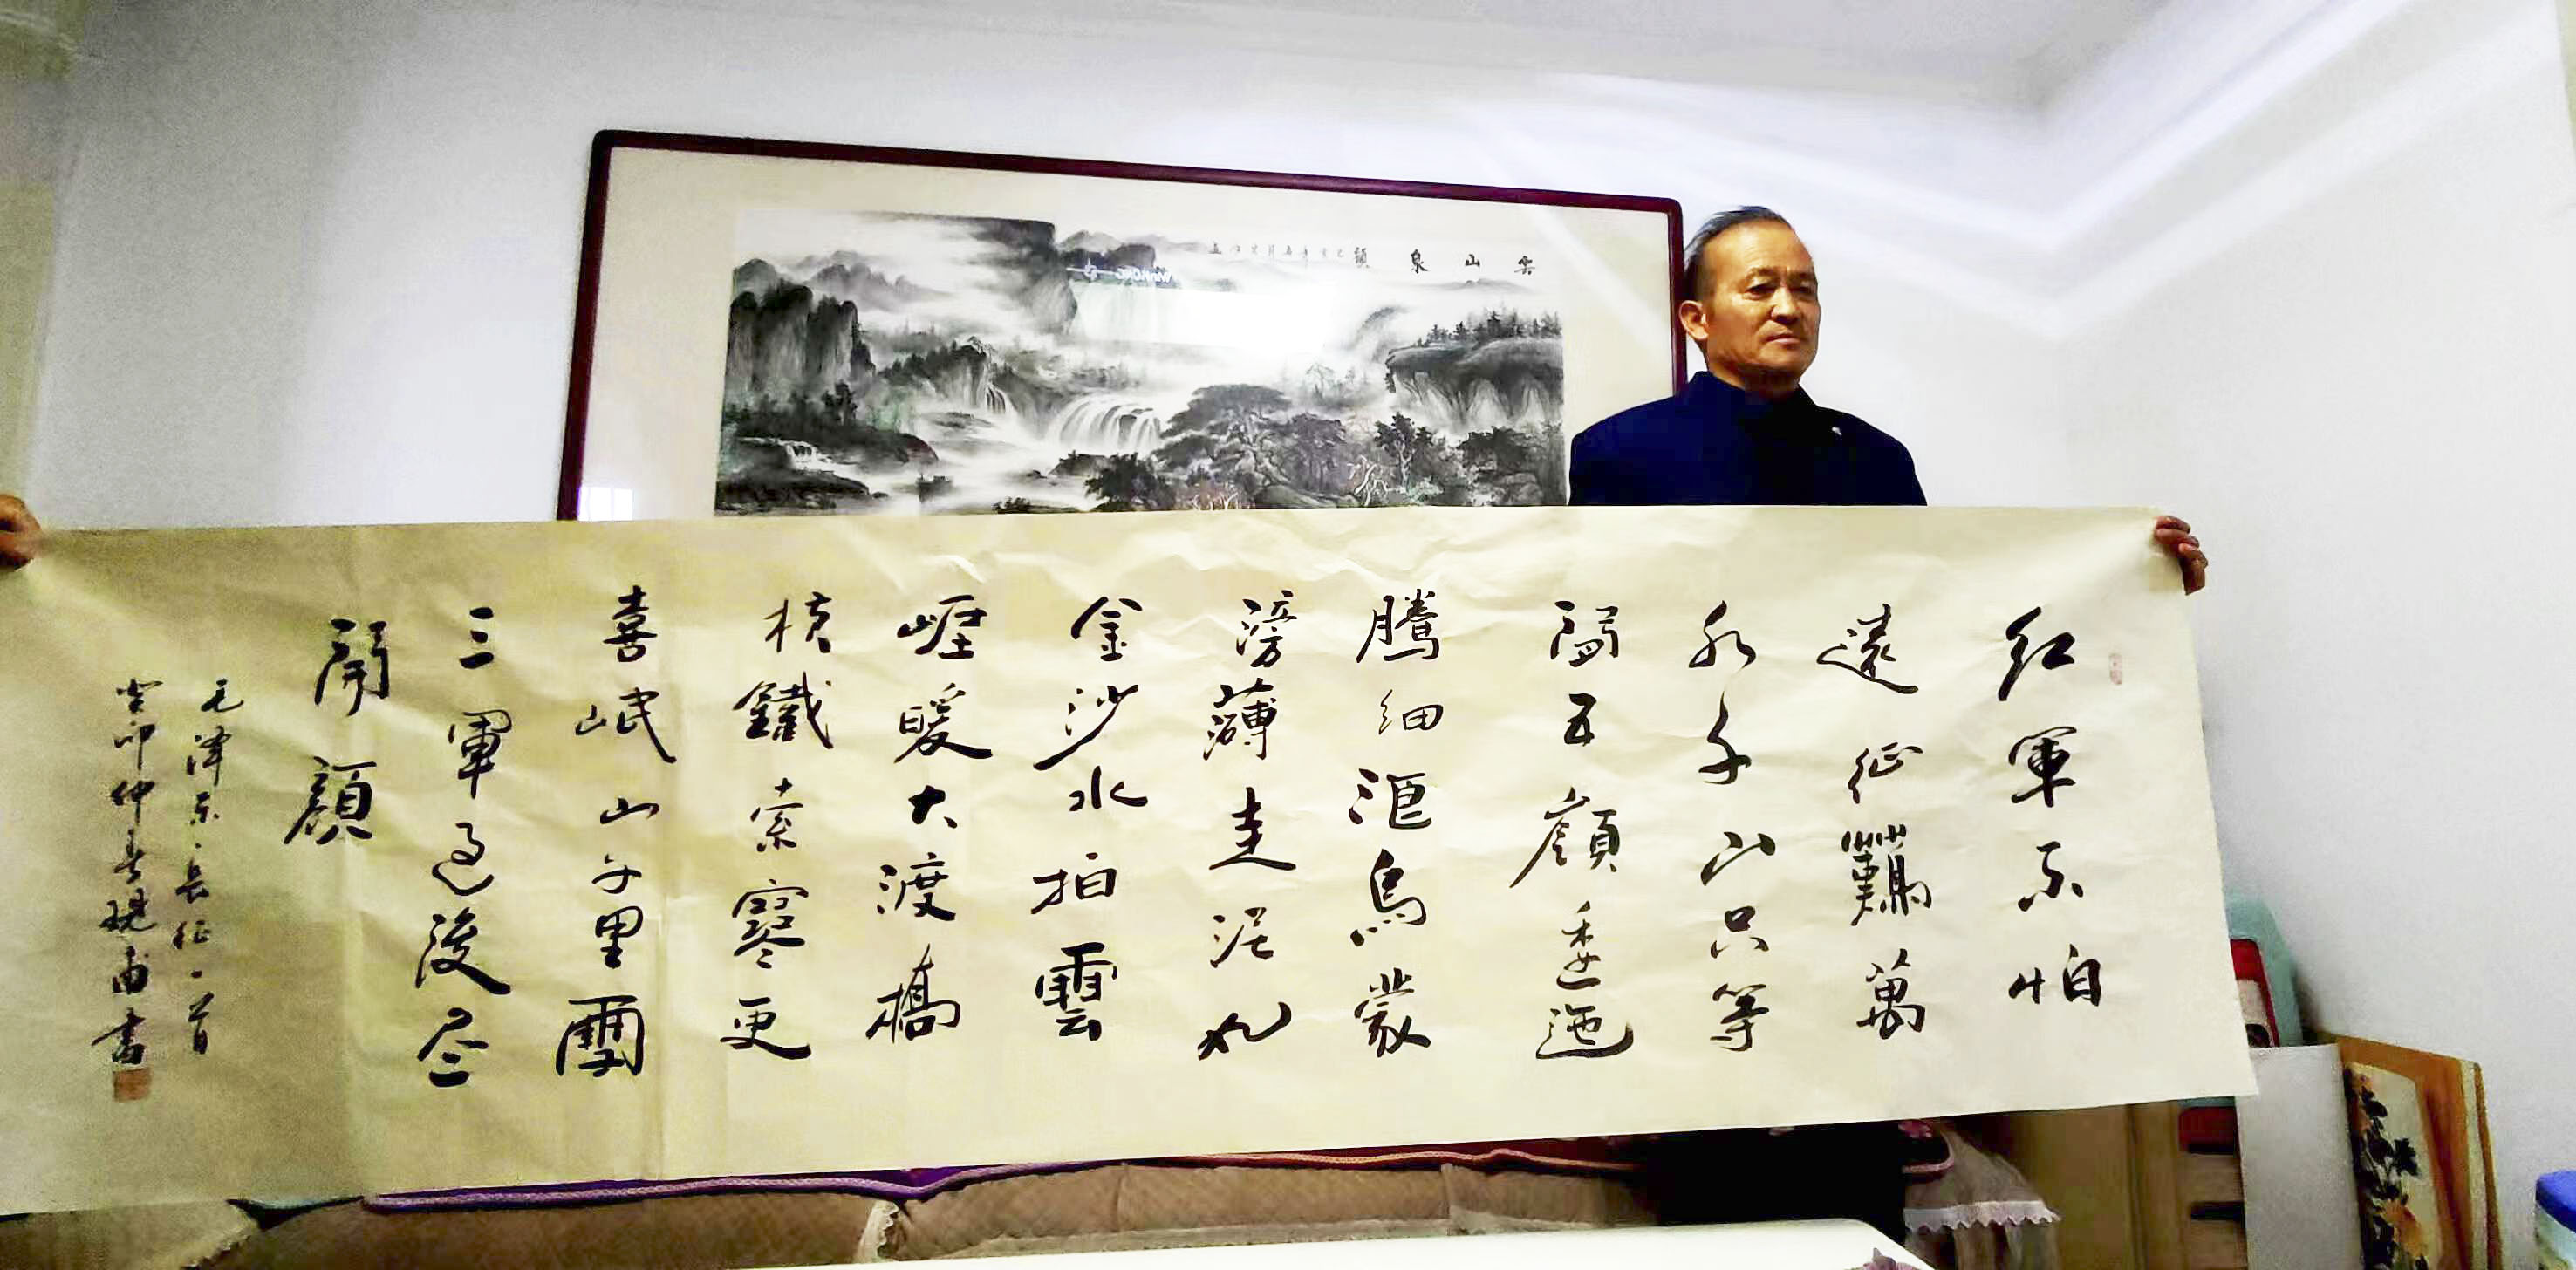 紅軍不怕
遠征難萬
水千山只等
閑五嶺逶迤
騰細浪烏蒙
滂薄走泥丸
金沙水拍雲
崕暖大渡橋
横鐵索寒更
喜岷山千里雪
三軍過後尽
開顏
毛澤東長征一首
癸卯仲春 甫書
山泉